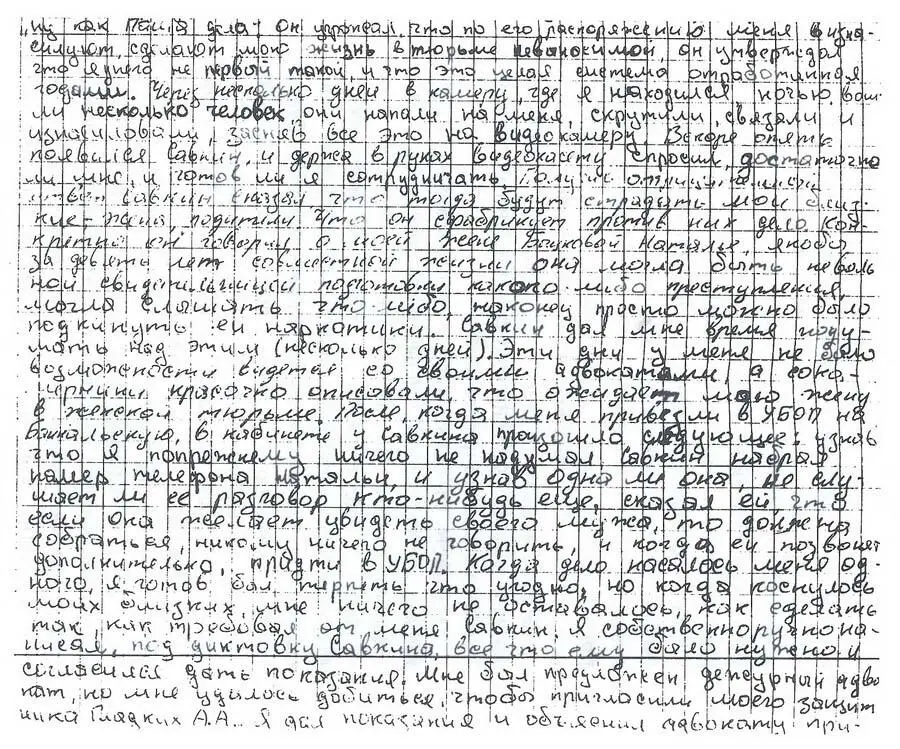 „ну как Паша дела? Он угрожал, что по его распоряжению меня изна-
силуют, сделают мою жизнь в тюрьме невыносимой, он утверждал
что я у него не первый такой, и что это целая система отработанная
годами. Через несколько дней в камеру, где я находился ночью вош-
ли несколько человек, они напали на меня, скрутили, связали и
изнасиловали, засняв все это на видеокамеру. Вскоре опять
появился Савкин, и держа в руках видеокасету спросил, достаточно
ли мне, и готов ли я сотрудничать. Получив отрицательный
ответ Савкин сказал, что тогда будут страдать мои близ-
кие - жена, родители. Что он сфабрикует против них дело, кон-
кретно он говорил о моей жене Наталье, якобы
за девять лет совместной жизни она могла быть неволь
ной свидетельницей подготовки какого-либо преступления,
могла слышать что либо, наконец просто можно было
подкинуть ей наркотики. Савкин дал мне время поду-
мать над этим (несколько дней). Эти дни у меня не было
возможности видется со своими адвокатами, а сока-
мерники красочно описовали, что ожидает мою жену
в женской тюрьме. После, когда меня привезли в УБОП на
Байкальскую, в кабинете у Савкина произошло следующее: узнав
что я попрежнему ничего не надумал Савкин набрал
намер телефона Натальи, и узнав одна ли она, не слу-
шает ли ее разговор кто-нибудь еще, сказал ей, что
если она желает увидеть своего мужа, то должна
собраться, никому ничего не говорить, и когда ей позвонят
дополнительно, придти в УБОП. Когда дело касалось меня од-
ного, я готов был терпеть что угодно, но когда коснулось
моих близких, мне ничего не оставалось, как сделать
так, как требовал от меня Савкин. Я собственноручно на-
писал, под диктовку Савкина, все что ему было нужно и
согласился дать показания. Мне был предложен дежурный адво
кат, но мне удалось добиться, чтобы пригласили моего защит
ника Гладких А.А. Я дал показания и объяснил адвокату при-